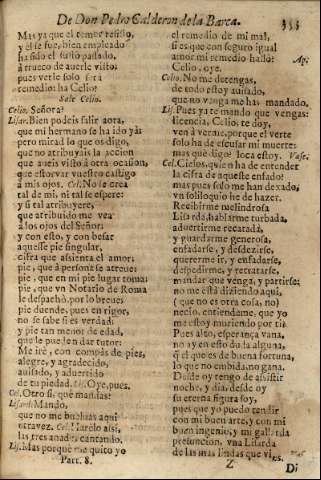 De Don Pedro Calderon de la Barca.
353
Mas ya que el temor resisto,
y el se fue, bien empleado
ha sido el susto passado,
à trueco de averle visto,
pues verle solo serà
remedio: ha Celio?
Sale Celio.
Celio. Señora?
Lisar. Bien podeis salir aora,
que mi hermano se ha ido yà:
pero mirad lo que os digo,
que no atribuyais la accion
que aueis visto à otra ocasion,
que estorvar vuestro castigo
à mis ojos. Cel. No se crea
tal de mi, ni tal se espere:
y si tal atribuyere,
que atribuido me vea
à los ojos del Señor:
y con esto, y con besar
aquesse pie singular,
cifra que assienta el amor;
pie, que à personas se atreue;
pie, que en mi pie lugar toma;
pie, que vn Notario de Roma
le despachò por lo breue;
pie duende, pues en rigor,
no se sabe si es verdad;
y pie tan menor de edad,
que le pueden dar tutor:
Me irè, con compàs de pies,
alegre, y agradecido,
auisado, y aduertido
de tu piedad. Lis. Oye, pues.
Cel. Otro si, que mandas?
Lisard. Mando,
que no me bueluas aqui
otra vez. Cel. Harèlo assi,
las tres anades cantando.
Lis. Mas porque me quito yo
Part. 8.
el remedio de mi mal,
si es que con seguro igual
amor mi remedio hallò?
Ap.
Celio, oye.
Celio. No me detengas,
de todo estoy auisado,
que no venga me has mandado.
Lis. Pues ya te mando que vengas:
licencia, Celio, te doy,
ven à verme, porque el verte
solo ha de escusar mi muerte:
mas que digo? loca estoy. Vase.
Cel. Cielos, quien ha de entender
la cifra de aqueste enfado?
mas pues solo me han dexado,
vn soliloquio he de hazer.
Recibirme melindrosa
Lisarda, hablarme turbada,
aduertirme recatada,
y guardarme generosa,
enfadarse, y desdezirse,
quererme ir, y enfadarse,
despedirme, y retratarse,
mandar que venga, y partirse:
no me està diziendo aqui,
(que no es otra cosa, no)
necio, entiendeme, que yo
me estoy muriendo por ti?
Pues alto, esperança vana,
no ay en esto duda alguna,
q̃ el que es de buena fortuna,
lo que no embida, no gana.
Desde oy tengo de assistir
noche, y dia, desde oy
su eterna figura soy,
pues que yo puedo rendir
con mi buen arte, y con mi
buen ingenio, y mi gallarda
presuncion, vna Lisarda
de las mas lindas que vi.
Vas.
Z
Di